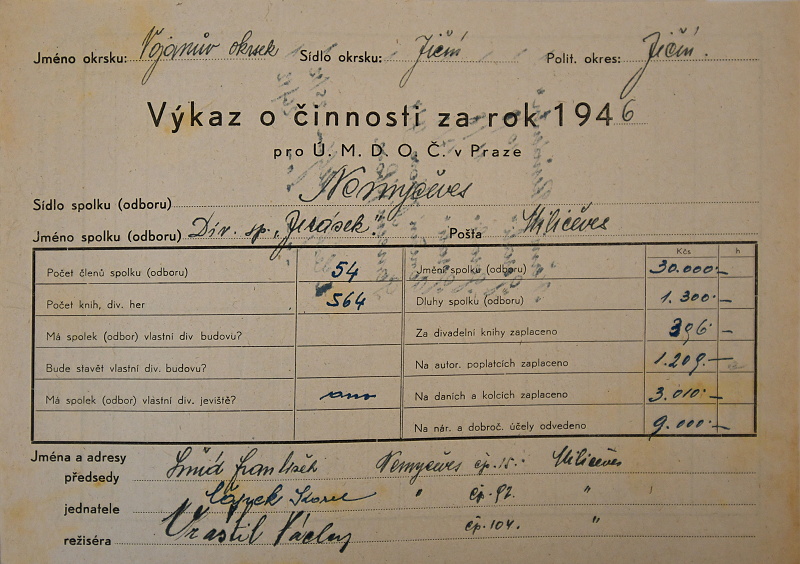 Jméno okrsku: Vojanův okrsek Sídlo okrsku: Jičín Polit. okres: Jičín.
Výkaz o činnosti za rok 1946
pro Ú. M. D. O. Č. v Praze
Sídlo spolku (odboru) Nemyčeves
Jméno spolku (odboru) Div. sp. „Jirásek“ Pošta Viličeves
Kčs h
Počet členů spolku (odboru) 54 Jmění spolku (odboru) 30.000·—
Počet knih, div. her 564 Dluhy spolku (odboru) 1.300·—
Má spolek (odbor) vlastní div budovu? Za divadelní knihy zaplaceno 396·—
Bude stavět vlastní div. budovu? Na autor. poplatcích zaplaceno 1.209.—
Má spolek (odbor) vlastní div. jeviště? ano Na daních a kolcích zaplaceno 3.010·—
Na nár. a dobroč. účely odvedeno 9.000·—
Jména a adresy
předsedy Šmíd František Nemyčeves čp. 15. Viličeves
jednatele Čápek " čp. 92. "
režiséra Vrastil Václav čp. 104. "